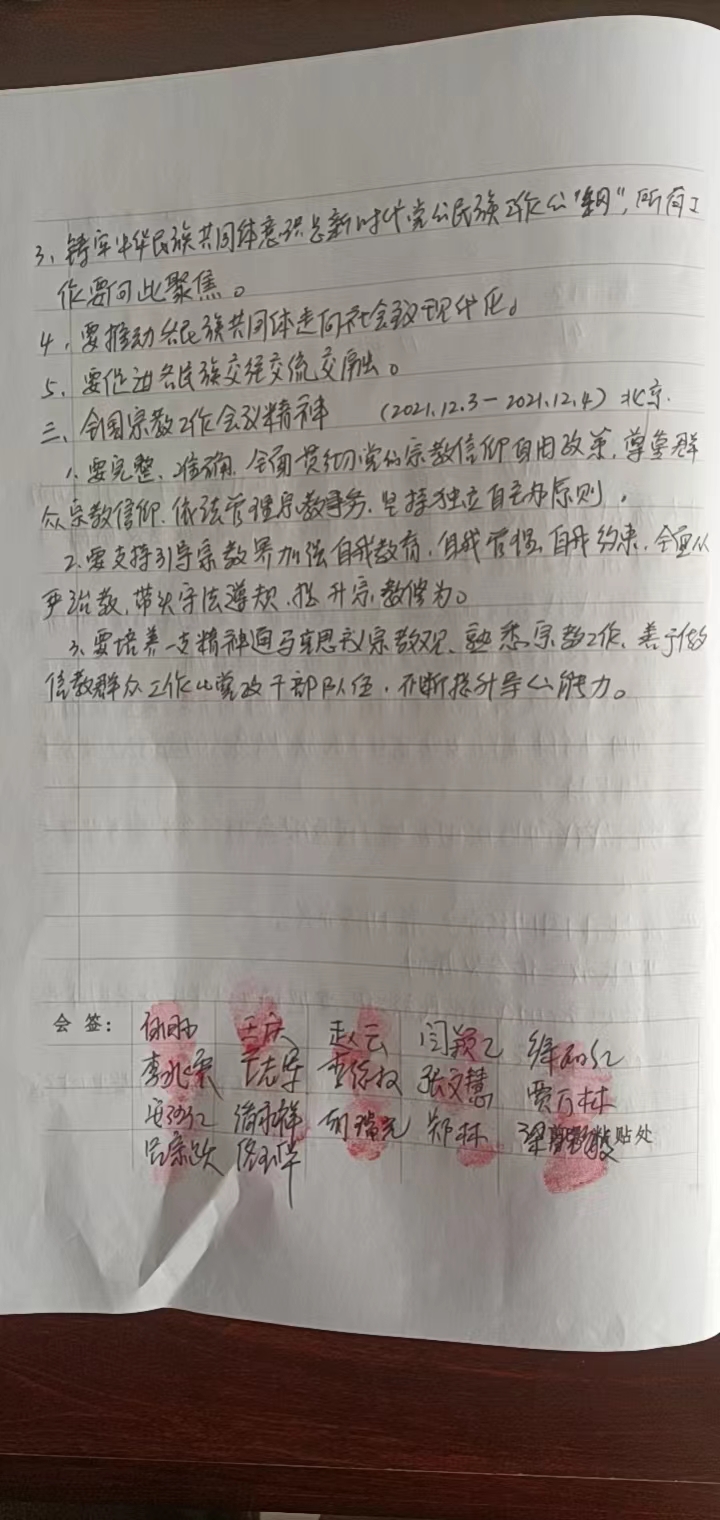 3、铸牢中华民族共同体意识是新时代党的民族工作的"纲",所有工
作要向此聚焦。
4、要推动各民族共同体走向社会主义现代化。
5、要促进各民族交往交流交融。
三、全国宗教工作会议精神 (2021.12.3-2021.12.4) 北京.
1、要完整、准确、全面贯彻党的宗教信仰自由政策,尊重群
众宗教信仰,依法管理宗教事务,坚持独立自主办原则,
2、要支持引导宗教界加强自我教育,自我管理,自我约束,全面从
严治教,带头守法遵规、提升宗教修为。
3、要培养一支精神通马克思主义宗教观、熟悉宗教工作、善于做
信教群众工作的党政干部队伍,不断提升导的能力。
会 签: 王庆 赵云
张文慧 贾万林
胡瑞元 郑林 粘贴处